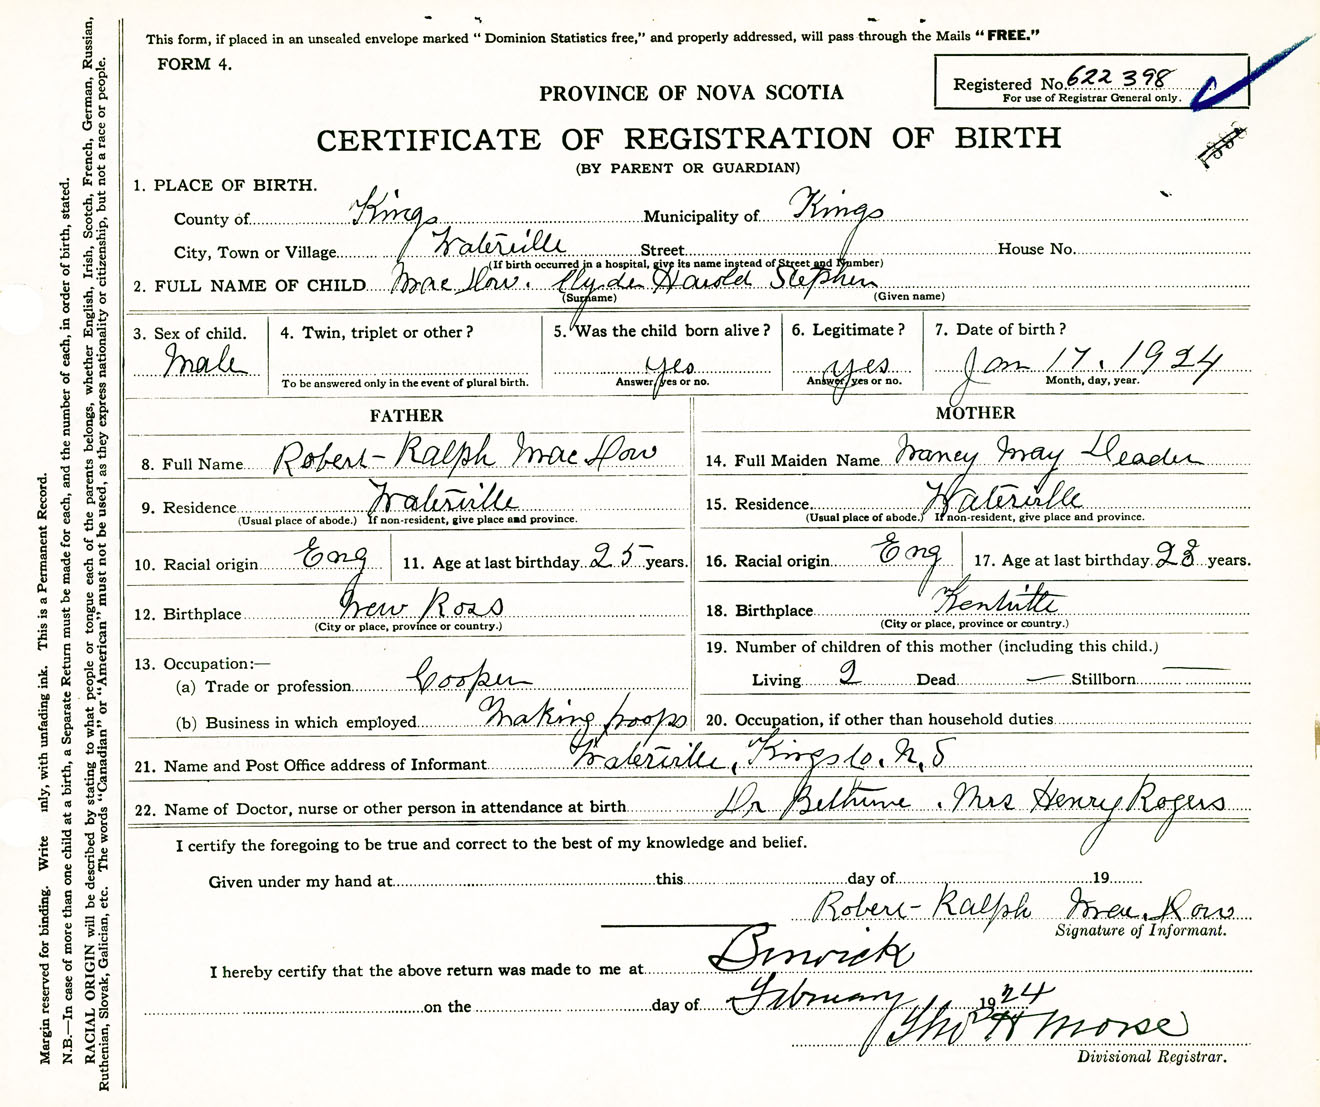 This form, if placed in an unsealed envelope marked "Dominion Statistics free," and properly addressed, will pass through the Mails "FREE."
FORM 4.
Registered No. 622398
For use of Registrar General only.
PROVINCE OF NOVA SCOTIA
CERTIFICATE OF REGISTRATION OF BIRTH
(BY PARENT OR GUARDIAN)
1. PLACE OF BIRTH.
County of Kings Municipality of Kings
City, Town or Village Waterville Street House No.
(If birth occurred in a hospital, give its name instead of Street and Number)
2. FULL NAME OF CHILD Mac Dow. Clyde Harold Stephen
(Surname) (Given name)
3. Sex of child. 4. Twin, triplet or other? 5. Was the child born alive? 6. Legitimate? 7. Date of birth?
Male yes yes Jan 17. 1924
To be answered only in the event of plural birth. Answer yes or no. Answer yes or no. Month, day, year.
FATHER
8. Full Name Robert Ralph Mac Dow
9. Residence Waterville
(Usual place of abode.) If non-resident, give place and province.
10. Racial origin Eng 11. Age at last birthday 25 years.
12. Birthplace New Ross
(City or place, province or country.)
13. Occupation:—
(a) Trade or profession Cooper
(b) Business in which employed Making hoops
MOTHER
14. Full Maiden Name Nancy May Deader
15. Residence Waterville
(Usual place of abode.) If non-resident, give place and province.
16. Racial origin Eng 17. Age at last birthday 23 years.
18. Birthplace Kentville
(City or place, province or country.)
19. Number of children of this mother (including this child.)
Living 2 Dead — Stillborn —
20. Occupation, if other than household duties
21. Name and Post Office address of Informant Waterville, Kings Co. N. S
22. Name of Doctor, nurse or other person in attendance at birth Dr Bethune . Mrs Henry Rogers
I certify the foregoing to be true and correct to the best of my knowledge and belief.
Given under my hand at this day of 19
Robert Ralph Mac. Dow
Signature of Informant.
I hereby certify that the above return was made to me at Berwick
on the day of February 1924
Tho H Morse
Divisional Registrar.
Margin reserved for binding. Write inly, with unfading ink. This is a Permanent Record.
N.B.—In case of more than one child at a birth, a Separate Return must be made for each, and the number of each, in order of birth, stated.
RACIAL ORIGIN will be described by stating to what people or tongue each of the parents belongs, whether English, Irish, Scotch, French, German, Russian,
Ruthenian, Slovak, Galician, etc. The words "Canadian" or "American" must not be used, as they express nationality or citizenship, but not a race or people.